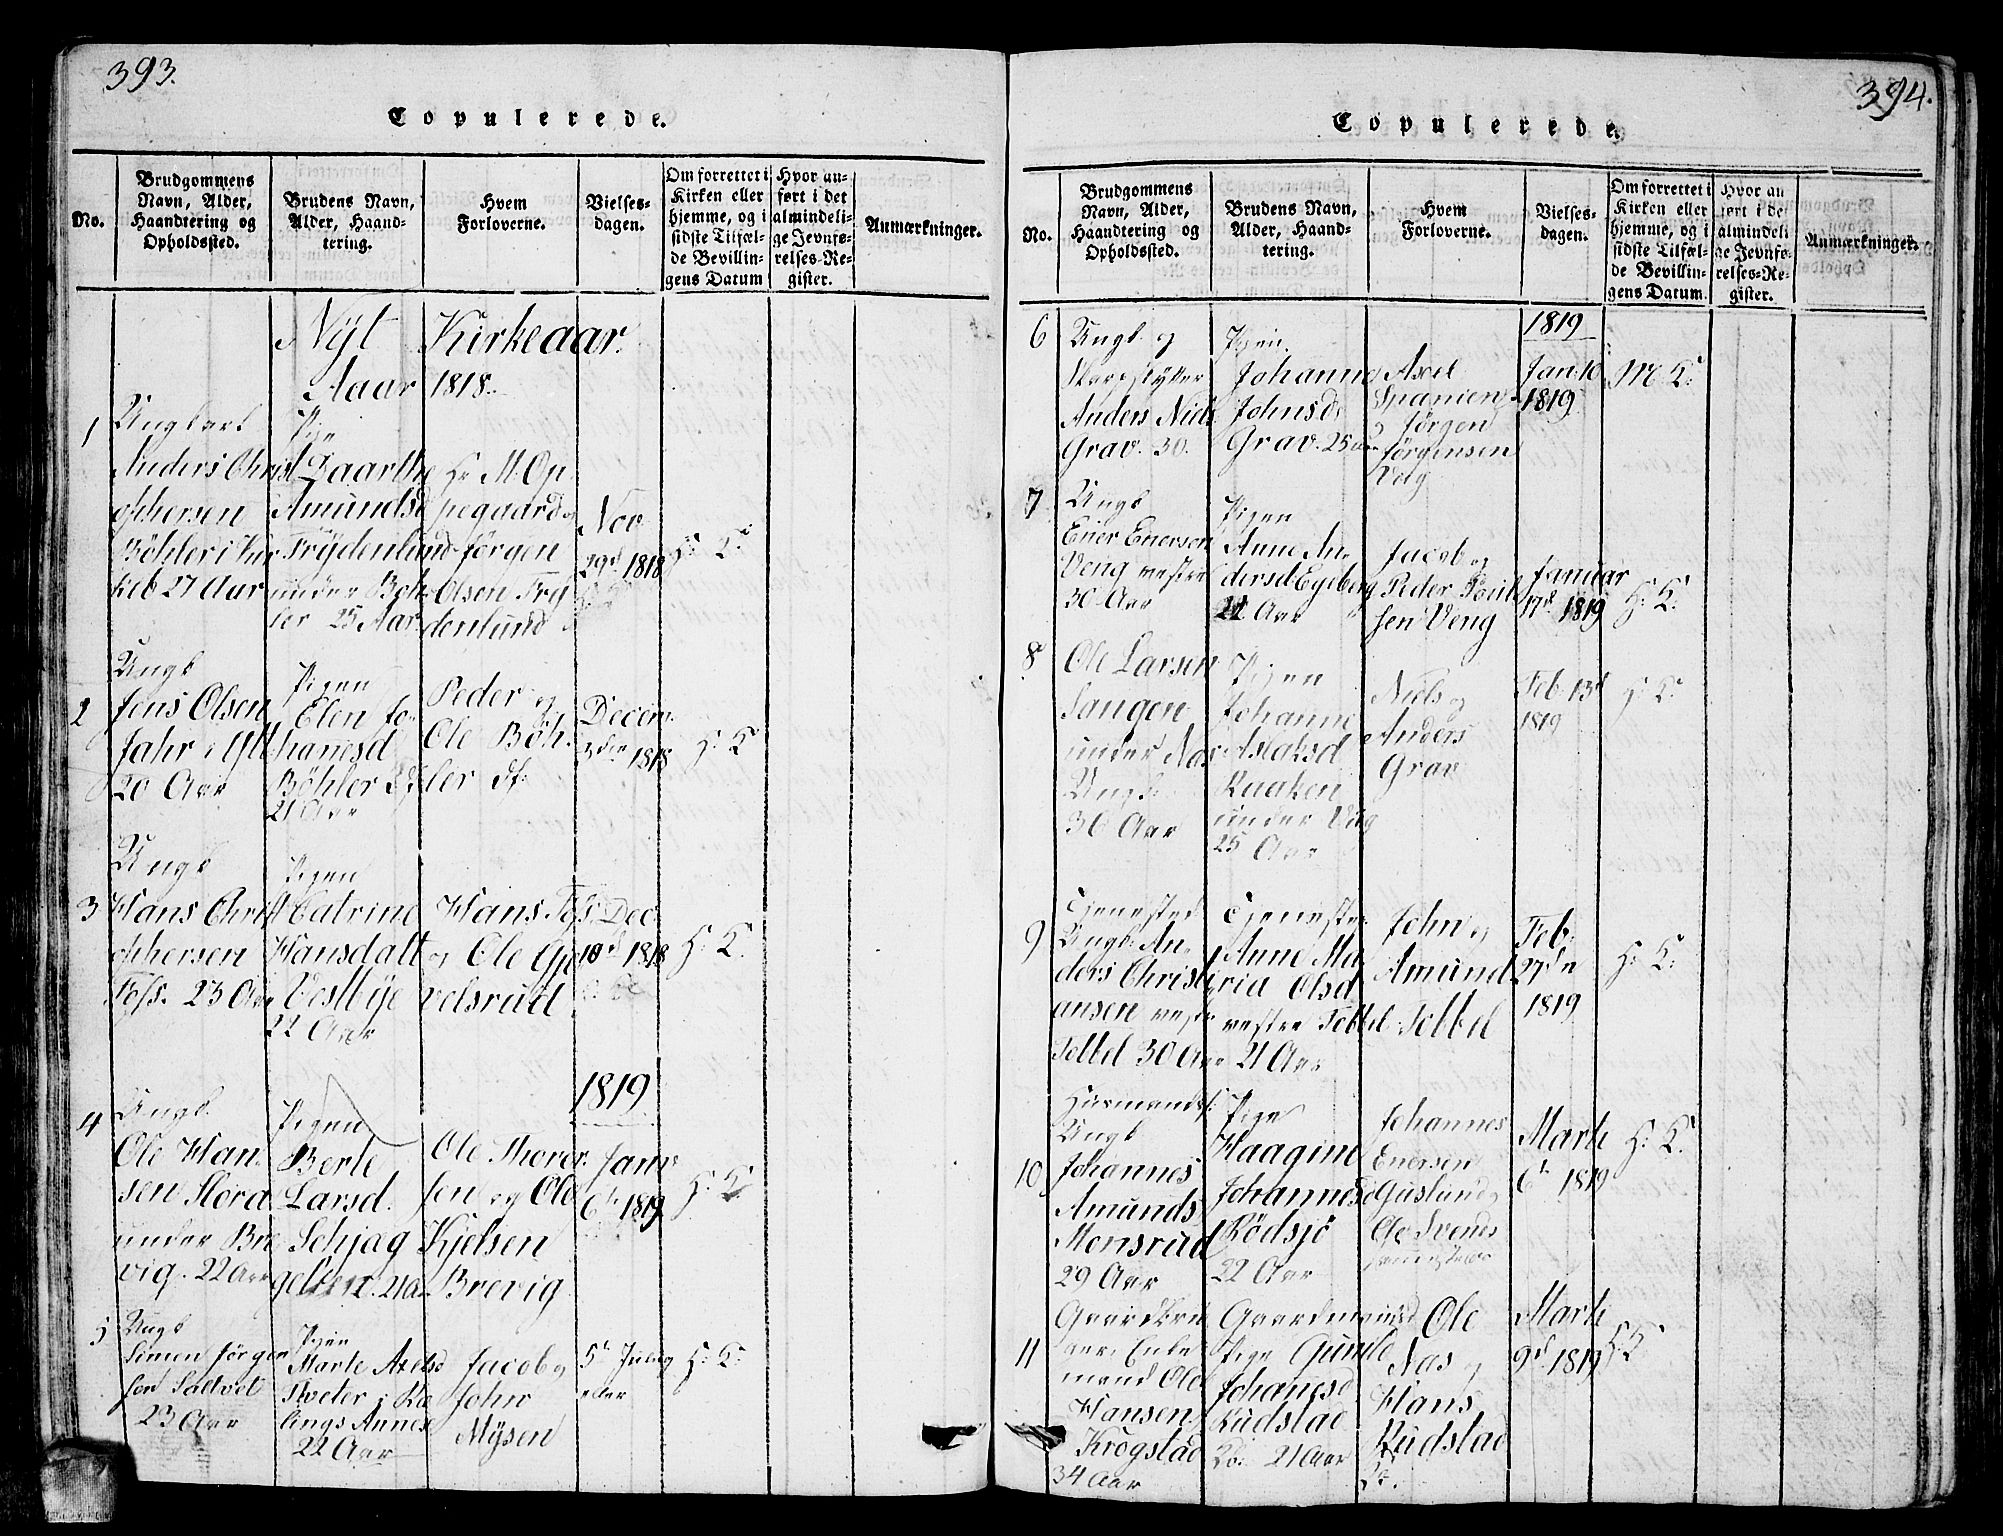 393.
Copulerede.
No.
Brudgommens
Navn, Alder,
Haandtering og
Opholdssted.
Brudens Navn,
Alder, Haand-
tering.
Hvem
Forloverne.
Vielses-
dagen.
Om forrettet i
Kirken eller
hjemme, og i
sidste Tilfæl-
de Bevillin-
gens Datum
Hvor an-
ført i det
almindeli-
ge Jevnfø-
relses-Re-
gister.
Anmærkninger.
Nÿt Kirkeaar.
Aaar 1818.
1
Ungkarl
Anders Christ
ophersen
Böhler i
27 Aar
Pige
Amundsd
Frydenlund
under Böh
ler 25 Aar
Hr M. Op
pegaard og
Jörgen
Olsen Fry
denlund
Nov
29d 1818
H: K:
2
Ungk
Jens Olsen
Jahr i
20 Aar
Pigen
Elen Jo-
hanesd
Böhler
21 Aar
Peder og
Ole Böh-
ler
Decem
3die 1818
H: K
3
Ungk
Hans Christ
ophersen
Foss. 23 Aar
Pigen
Catrine
Hansdatt
Vestbÿe
22 Aar
Hans Foss
og Ole Gje
velsrud
Dec
1818
H: K:
4
Ungk.
Ole Han-
sen Slora
under Bre
vig. 22 Aar
Pigen
Berte
Larsd.
Schjag
gelten. 21 a.
Ole Thorer
sen og Ole
Kjelsen
Brevig
1819
Janv
6t 1819
H: K
5
Ungk
Simen Jörgen
sen Saltvet
23 Aar
Pigen
Marte Axelsd
Sveter i Kæ
lings Annex
22 Aar
Jacob og
John
Mÿsen
H: K:
394.
Copulerede.
No.
Brudgommens
Navn, Alder,
Haandtering og
Opholdssted.
Brudens Navn,
Alder, Haand-
tering.
Hvem
Forloverne.
Vielses-
dagen.
Om forrettet i
Kirken eller
hjemme, og i
sidste Tilfæl-
de Bevillin-
gens Datum.
Hvor an
ført i de
almindeli
ge Jevnfø-
relses-Re-
gister.
Anmærkninger.
6
Ungk. og
Anders Niels
Grav. 30.
Pigen.
Johanne
Johnsd.
Grav. 25 aar
Axel
Spanien
og Jörgen
Jörgensen
1819
Jan. 10
1819
M K:
7
Ungk
Ener Enersen
Veng vestre
30 Aar
Pigen
Anne An-
dersd Egeberg
Aar
Jacob og
Peder
sen Veng
Januar
17d 1819
H: K:
8
Ole Larsen
Sangen
under Nas
Ungk:
30 Aar
Pigen
Johanne
Aslaksd
Raaken
under
25 Aar
Niels og
Anders
Grav
Feb 13d
1819
H: K:
9
Tjenested
Ungk: An-
ders Christi
ansen vestre
30 Aar
Tjeneste
Anne Ma
ria Olsd
vestre
21 Aar
John og
Amund
Feb.
27d n
1819
H: K:
10
Husmands
Ungk
Johannes
Amunds
Monsrud
29 Aar
Pige
Haagine
Johannesd
Rödsjö
22 Aar
Johannes
Enersen
Guslund
Ole Svends
Marti
6t 1819
H: K:
11
Enke
mand Ole
Hansen
Krogstad
34 Aar
Gaardmands
Pige Gunil
Johanesd
Rudstad
21 Aar
Ole
Nas og
Hans
Rudstad
Marti
9d 1819
H: K